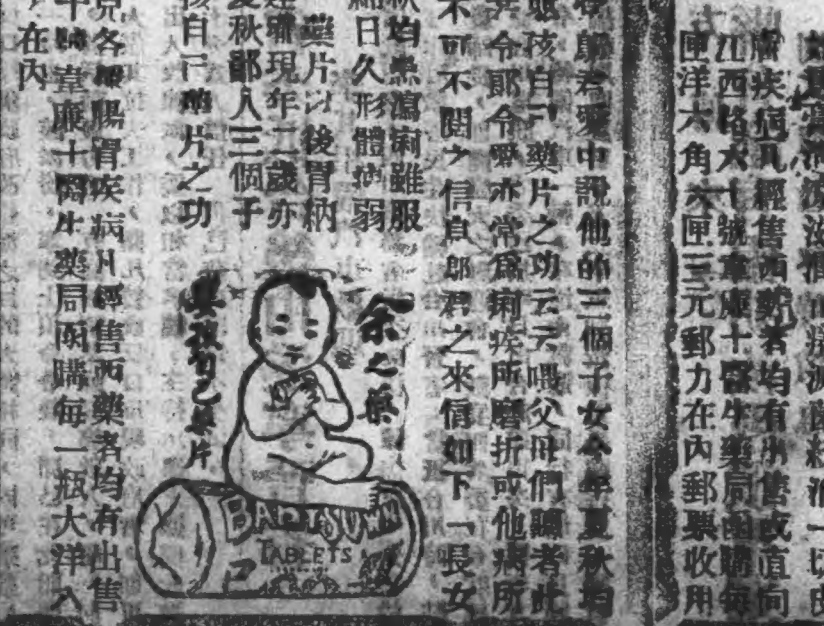 膚疾病凡經售西藥者均有出售或直向
江西路六十號韋廉士醫生藥局函購每
匣洋六角六匣三元郵力在內郵票收用
郎君愛中說他的三個子女今年夏秋均
孩自己藥片之功云云喂父母們聽者此
令郎令愛亦常為痢疾所磨折或他病所
不可不閱之信自郎君之來信如下「長女
秋均患瀉痢雖服
日久形體病弱
藥片以後胃納
現年二歲亦
夏秋鄙人三個子
孩自己藥片之功
余之藥
嬰孩自己藥片
BABY'S OWN
TABLETS
兒各種腸胃疾病凡經售西藥者均有出售
韋廉士醫生藥局函購每一瓶大洋八
在內